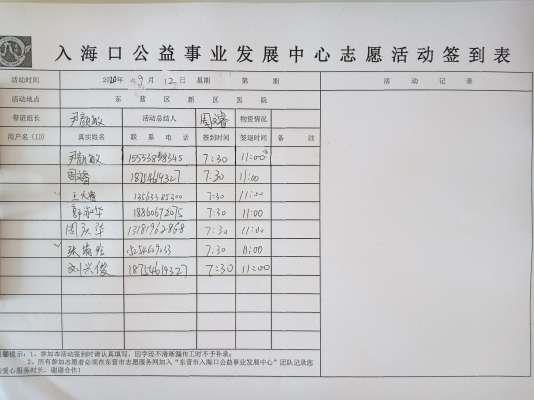 入海口公益事业发展中心志愿活动签到表
活动时间 2020年 9月 12日 星期 第 期 活动记录
活动地点 东营区新区医院
带班组长 尹颜敏 活动总结人 周睿 物资情况
用户名(ID) 真实姓名 联系电话 签到时间 签退时间 备注
尹颜敏 15553858345 7:30 11:00
周睿 18754614327 7:30 11:00
13563385300 7:30 11:00
18860672075 7:30 11:00
周庆华 13181962868 7:30 11:00
张 7:30 11:00
刘兴俊 18754614327 7:30 11:00
提示:1、参加本活动签到时请认真填写,因字迹不清所漏传工时不予补录;
2、所有参加志愿者必须在东营市志愿服务网加入“东营市入海口公益事业发展中心”团队记录您
爱心服务时长,谢谢合作!